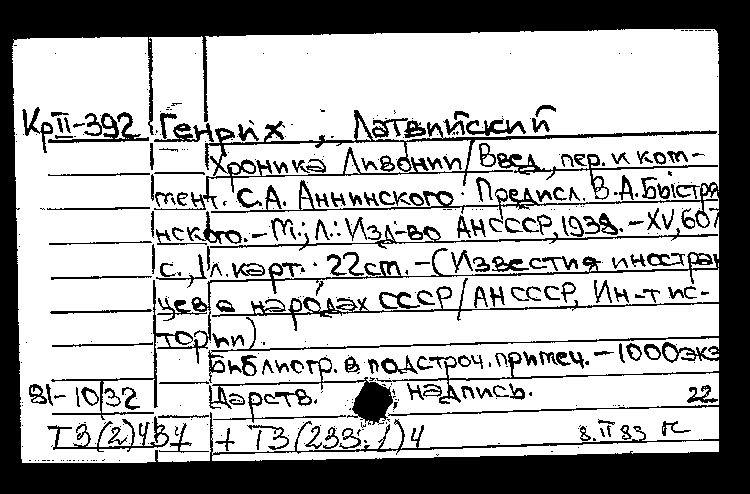 КрII-392 Генрих, Латвийский
Хроника Ливонии/Введ., пер. и ком-
мент. С.А. Аннинского. Предисл. В.А. Быстря
нского. - М.; Л.: Изд-во АН СССР, 1938. - XV, 607
с., 1 л. карт.: 22 см. - (Известия иностран
цев о народах СССР/АН СССР, Ин-т ис-
тории).
Библиогр. в подстроч. примеч. - 1000 экз
81-10/32 Дарств. надпись. 22
Т3(2)434 + Т3(233.1)4 8.II 83